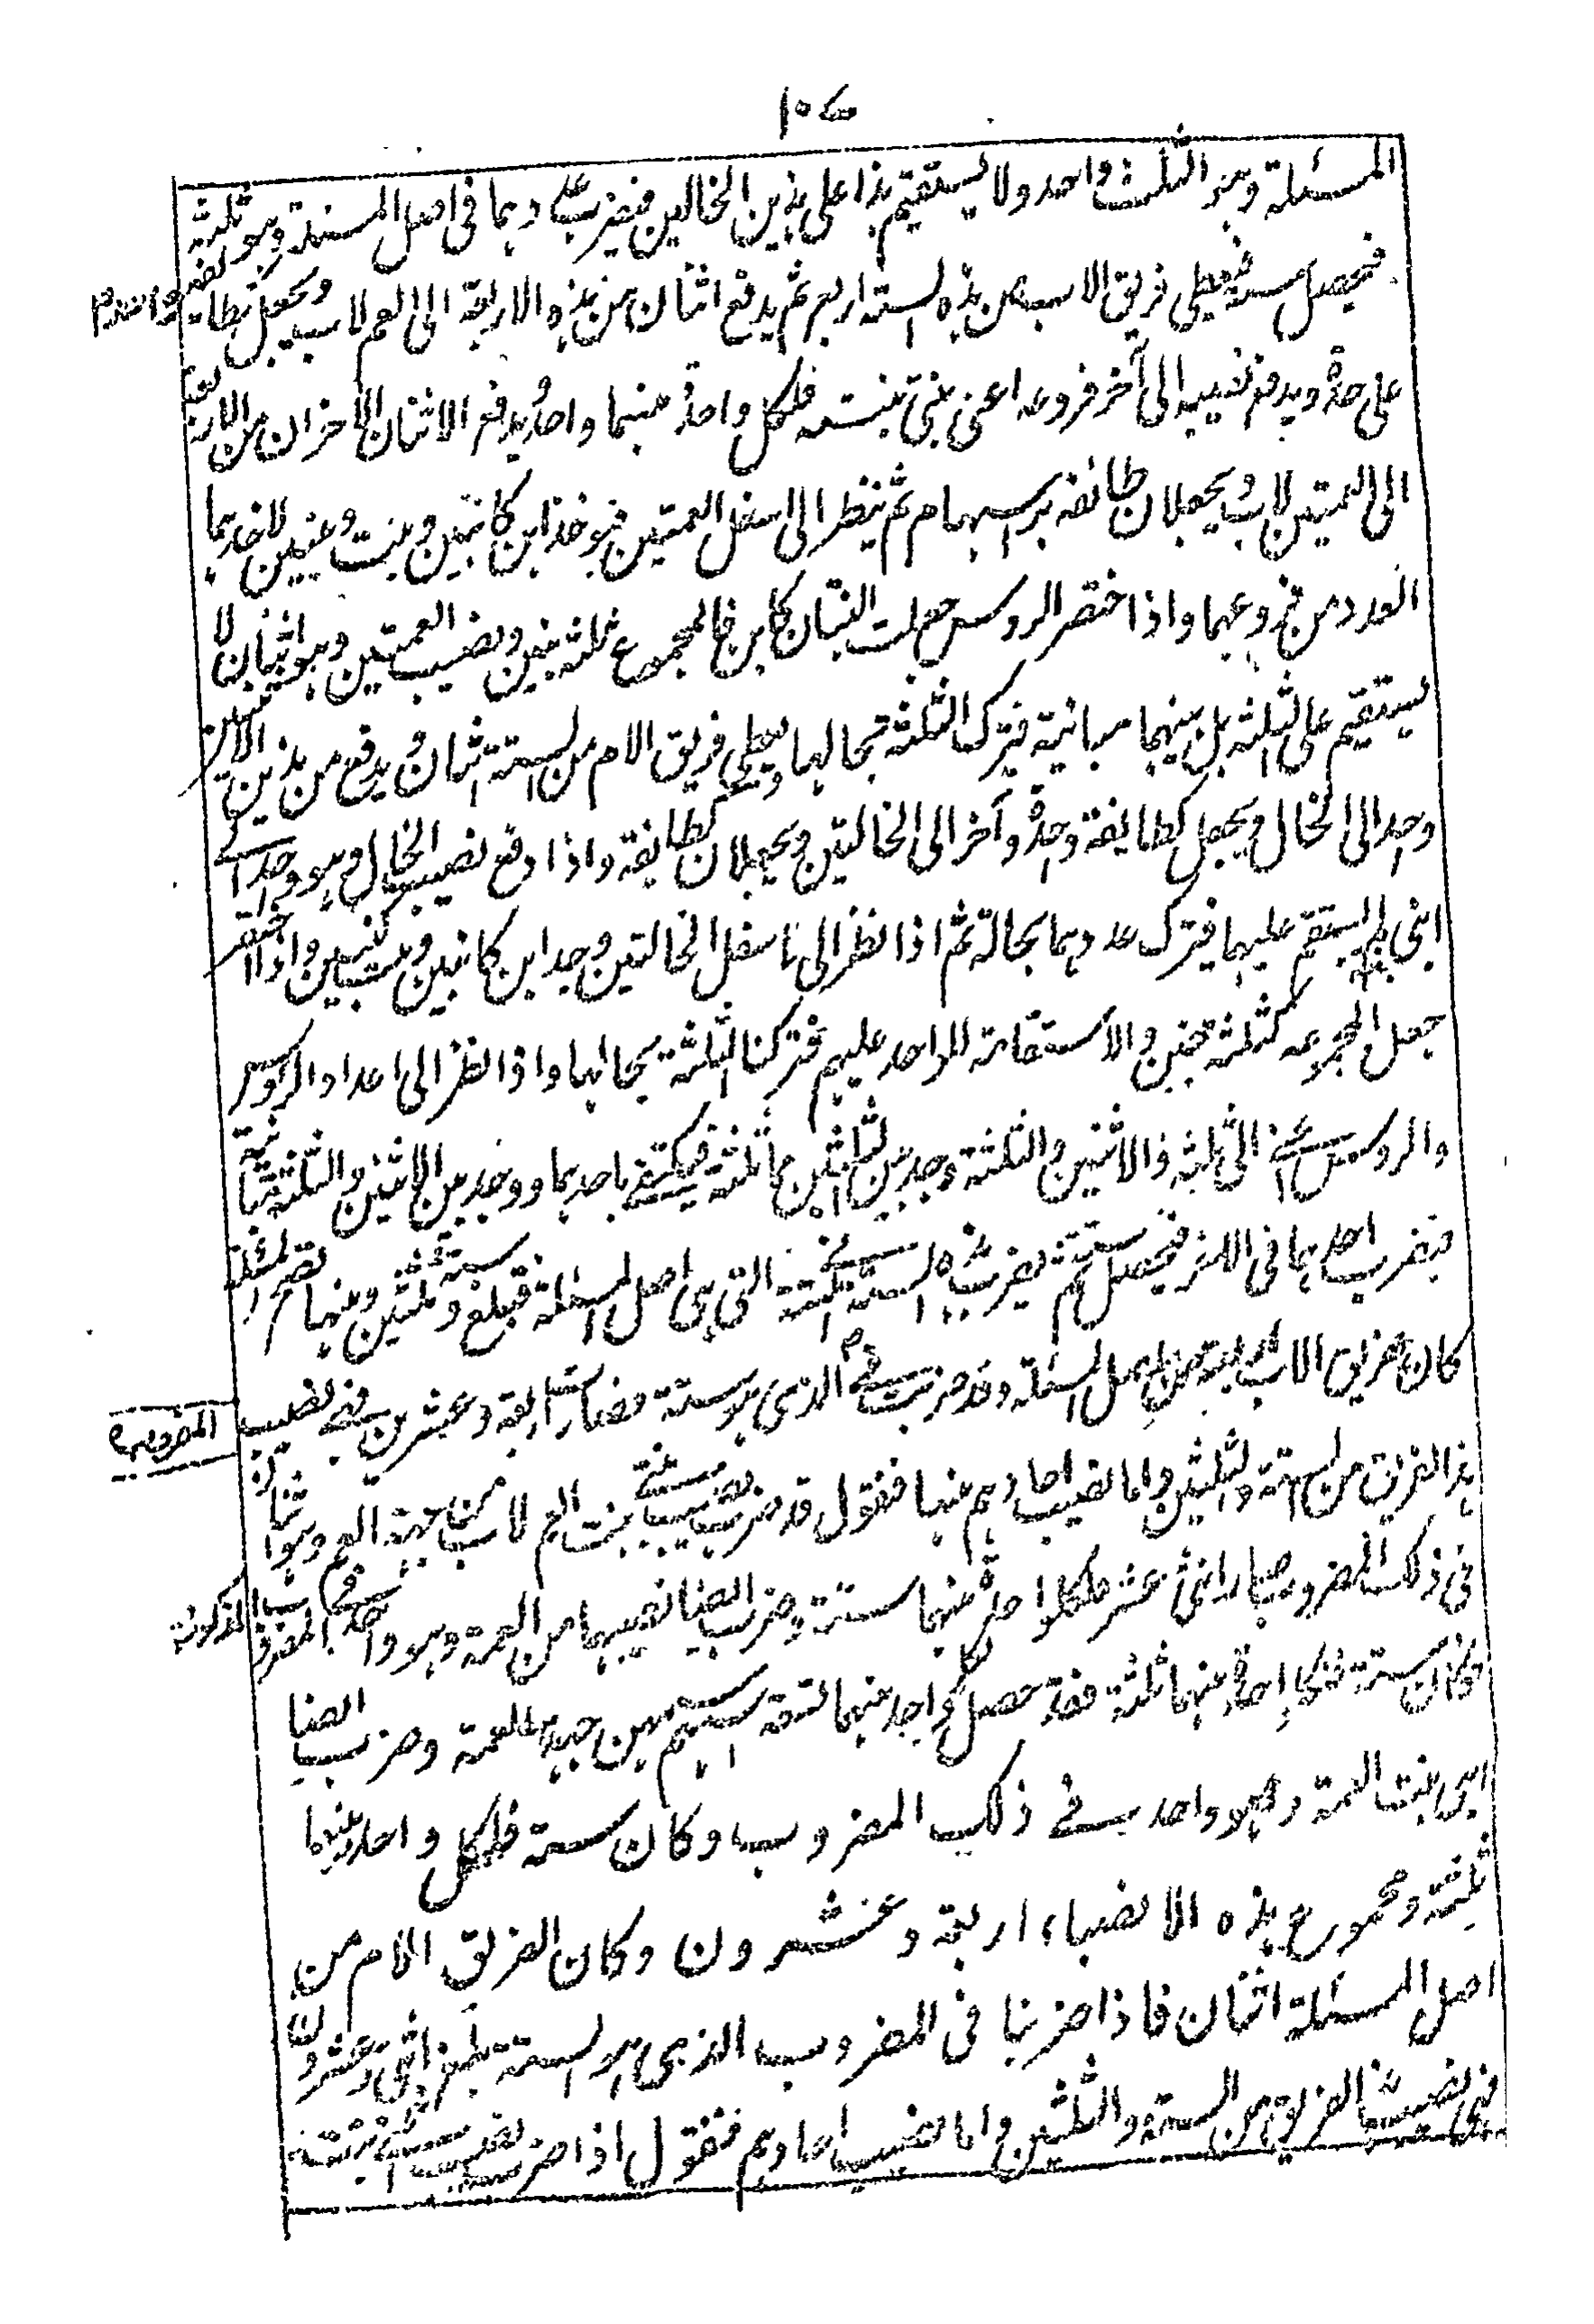 ١٠٤
المسئلة وهو الثلث واحد ولا يستقيم هذا على هذين الخالين فيضرب عددهما فى اصل المسئلة وهو ثلثة
فيحصل ستة فيعطى فريق الاب من هذه الستة اربع ثم يدفع اثنان من هذه الاربعة الى العم لاب ويجعل طائفة
على حدة ويدفع نصيبه الى آخر فروعه اعنى بنتى بنته فلكل واحدة منهما واحد ويدفع الاثنان الآخران من الاربعة
الى العمتين لاب ويجعلان طائفة براسهما ثم ينظر الى اسفل العمتين فيوخذ ابن كابنين وبنت وبنتين لاخذهما
العدد من فروعهما واذا اختصر الروس جعلت البنتان كابن فالمجموع ثلثة بنين ونصيب العمتين وهو اثنان لا
يستقيم على الثلثة بل بينهما مباينة فيترك الثلثة بحالها ويعطى فريق الام من الستة اثنان ويدفع من هذين الاثنين
واحد الى الخال ويجعل كطائفة واحدة وآخر الى الخالتين ويجعلان كطائفة واذا دفع نصيب الخال وهو واحد الى
ابنى بنته لم يستقم عليهما فيترك عددهما بحاله ثم اذا نظر الى ما اسفل الخالتين وجد ابن كابنين وبنت كبنتين واذا اختصر
جعل المجموع كثلثة بنين ولا استقامة للواحد عليهم فتركنا الثلثة بحالها واذا نظر الى اعداد الروس
والروس اعنى الثلثة والاثنين والثلثة وجد بين الثلثين مماثلة فيكتفى باحدهما ووجد بين الاثنين والثلثة مباينة
فيضرب احدهما فى الآخر فيحصل ستة ثم يضرب هذه الستة فى الستة التى هى اصل المسئلة فتبلغ ستة وثلثين ومنها تصح المسئلة
كان لفريق الاب اربعة من اصل المسئلة وقد ضربت فى المضروب الذى هو ستة فصار اربعة وعشرين فهى نصيب
هذا الفريق من الستة والثلثين واما نصيب احادهم منها فنقول قد ضرب نصيب بنتى بنت العم لاب من جهة العم وهو اثنان
فى ذلك المضروب فصار اثنى عشر فلكل واحدة منهما ستة وضرب ايضا نصيبهما من العمة وهو واحد فى المضروب المذكور
فكان ستة فلكل واحدة منهما ثلثة فقد حصل لكل واحد منهما تسعة اسهم من جهة العم والعمة وضرب ايضا
ابنى بنت العمة وهو واحد فى ذلك المضروب وكان ستة فلكل واحد منهما
ثلثة ومجموع هذه الانصباء اربعة وعشرون وكان لفريق الام من
اصل المسئلة اثنان فاذا ضربنا فى المضروب الذى هو الستة بلغ اثنى عشر
فهى نصيب هذا الفريق من الستة والثلثين واما نصيب احادهم فنقول اذا ضرب نصيب